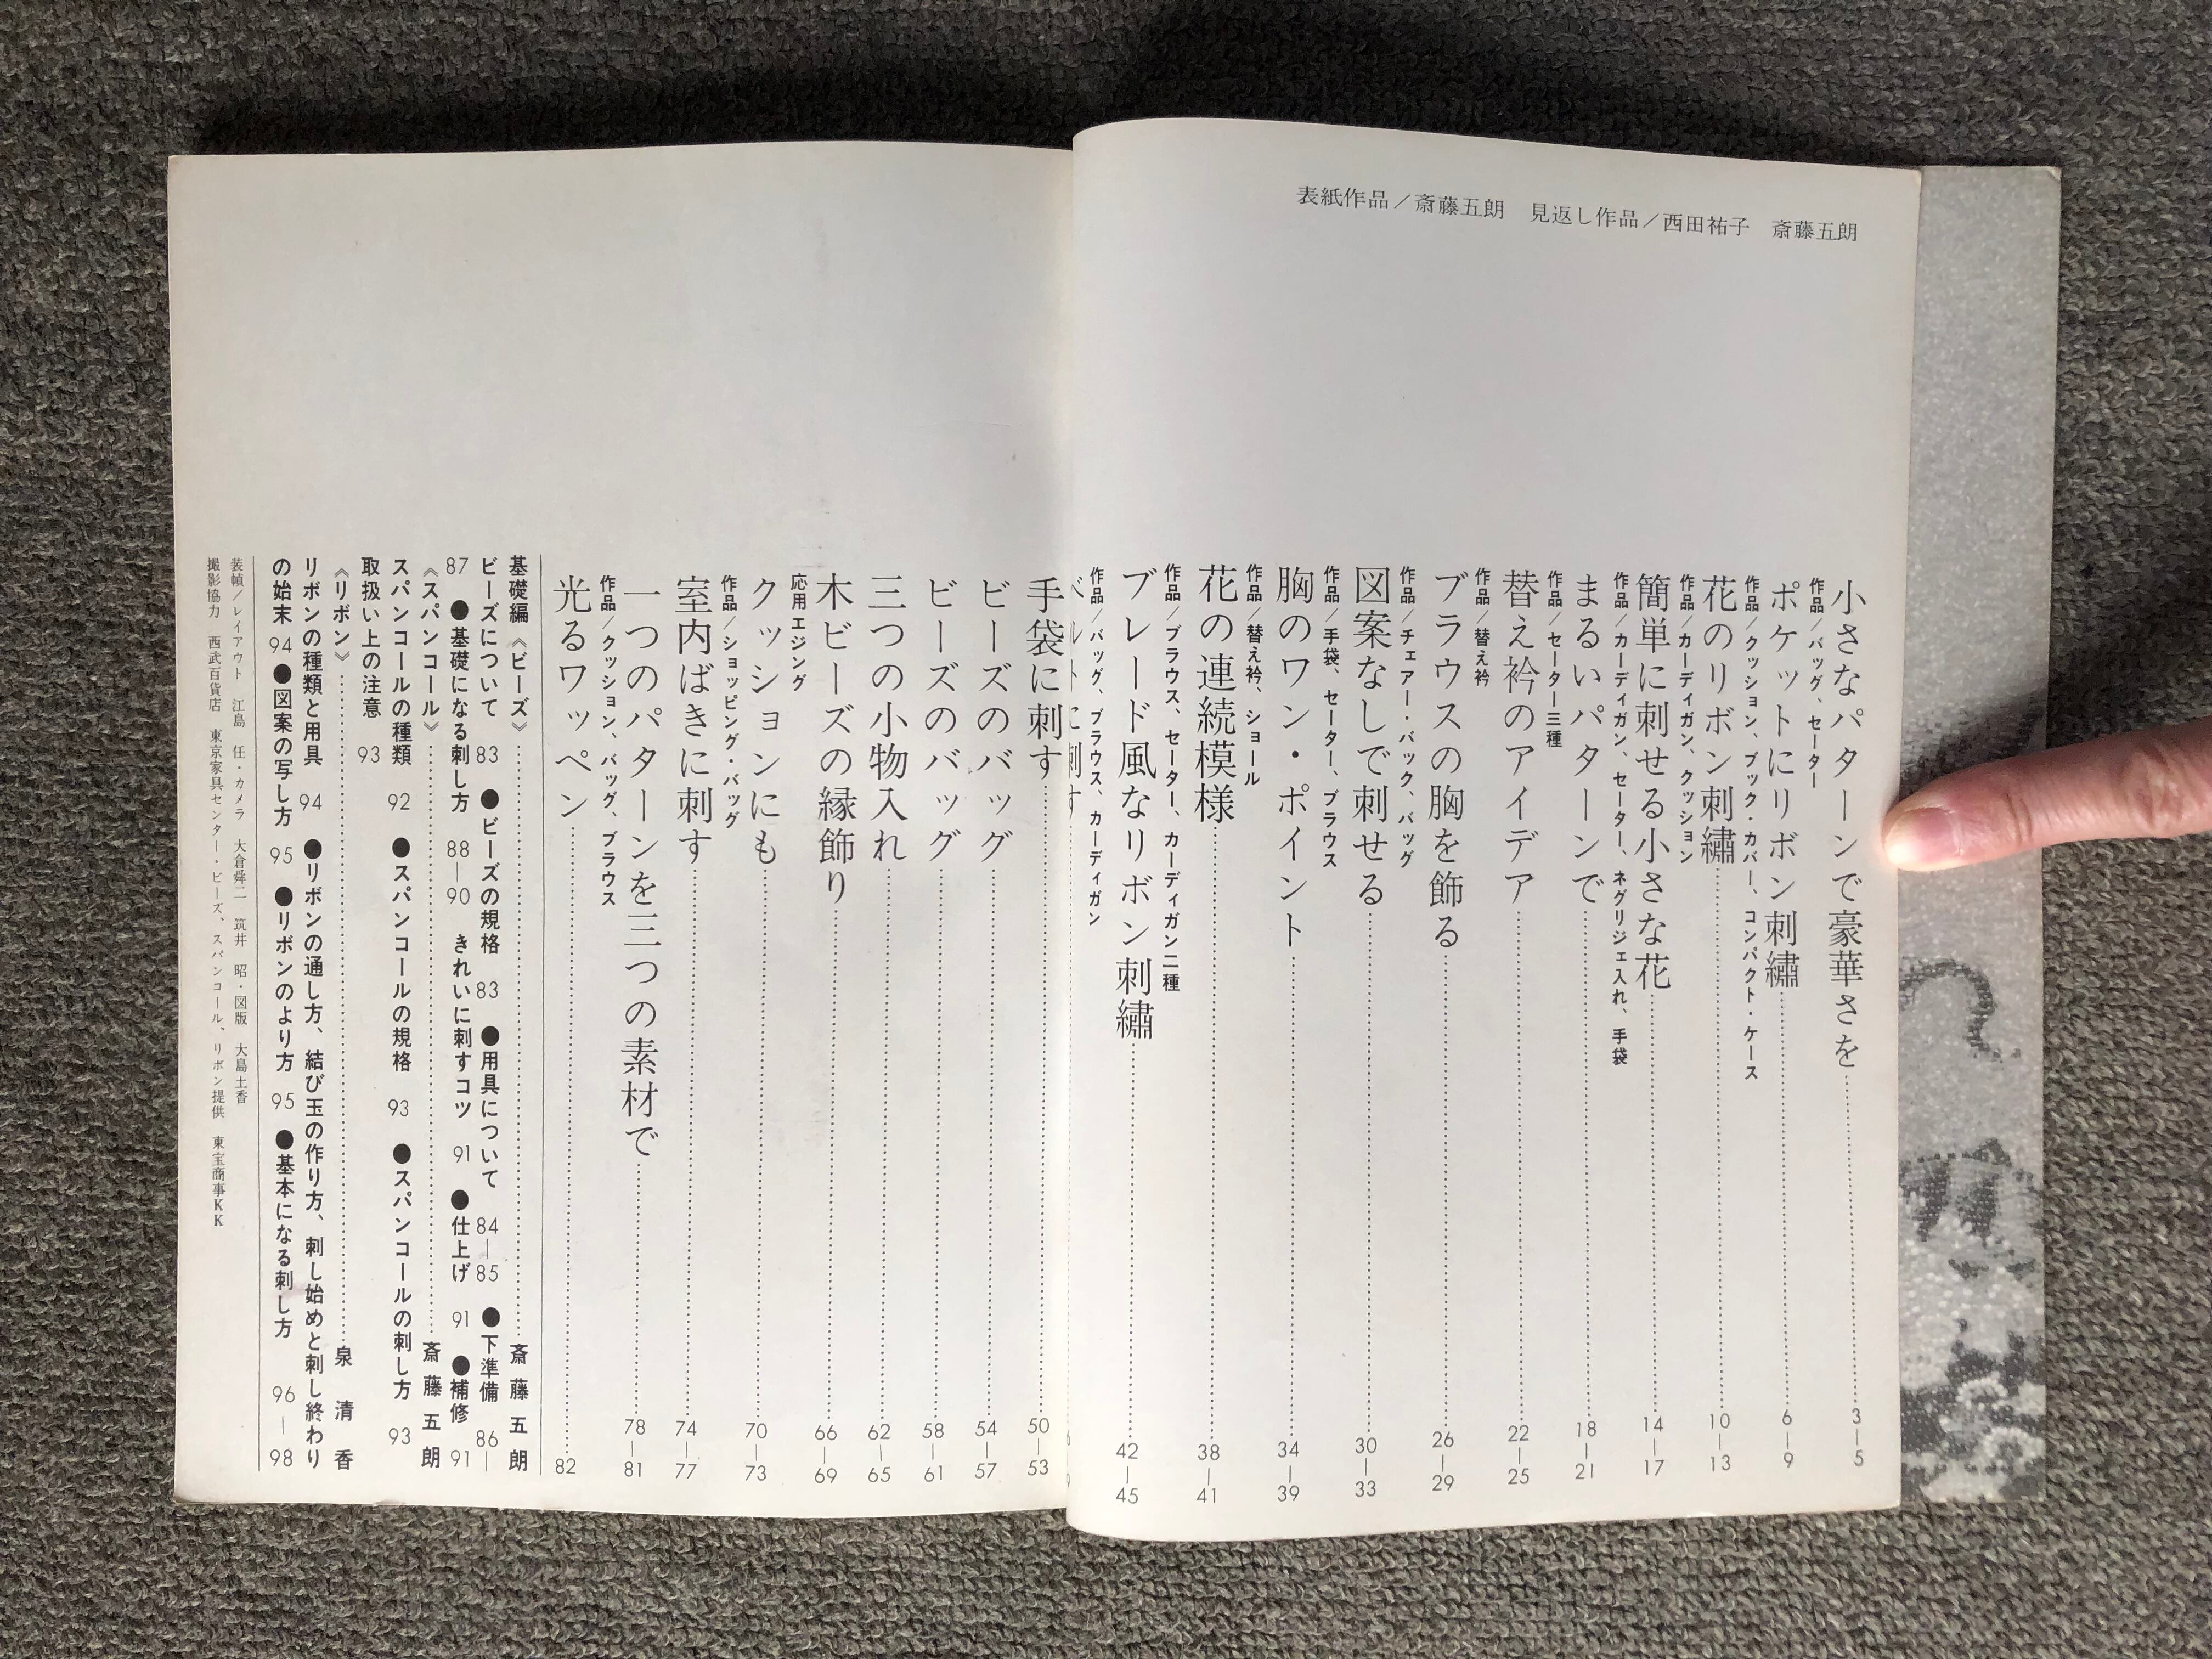 表紙作品／斎藤五朗　見返し作品／西田祐子　斎藤五朗
小さなパターンで豪華さを……3―5
作品／バッグ、セーター
ポケットにリボン刺繡……6―9
作品／クッション、ブック・カバー、コンパクト・ケース
花のリボン刺繡……10―13
作品／カーディガン、クッション
簡単に刺せる小さな花……14―17
作品／カーディガン、セーター、ネグリジェ入れ、手袋
まるいパターンで……18―21
作品／セーター三種
替え衿のアイデア……22―25
作品／替え衿
ブラウスの胸を飾る……26―29
作品／チェアー・バック、バッグ
図案なしで刺せる……30―33
作品／手袋、セーター、ブラウス
胸のワン・ポイント……34―39
作品／替え衿、ショール
花の連続模様……38―41
作品／ブラウス、セーター、カーディガン二種
ブレード風なリボン刺繡……42―45
作品／バッグ、ブラウス、カーディガン
ベルトに刺す……
手袋に刺す……50―53
ビーズのバッグ……54―57
ビーズのバッグ……58―61
三つの小物入れ……62―65
木ビーズの縁飾り……66―69
応用エジング
クッションにも……70―73
作品／ショッピング・バッグ
室内ばきに刺す……74―77
一つのパターンを三つの素材で……78―81
作品／クッション、バッグ、ブラウス
光るワッペン……82
基礎編《ビーズ》……斎藤五朗
ビーズについて　83　●ビーズの規格　83　●用具について　84―85　●下準備　86―
87　●基礎になる刺し方　88―90　きれいに刺すコツ　91　●仕上げ　91　●補修　91
《スパンコール》……斎藤五朗
スパンコールの種類　92　●スパンコールの規格　93　●スパンコールの刺し方　93
取扱い上の注意　93
《リボン》……泉　清香
リボンの種類と用具　94　●リボンの通し方、結び玉の作り方、刺し始めと刺し終わり
の始末　94　●図案の写し方　95　●リボンのより方　95　●基本になる刺し方　96―98
装幀／レイアウト　江島　任・カメラ　大倉舜二　筑井　昭・図版　大島土香
撮影協力　西武百貨店　東京家具センター・ビーズ、スパンコール、リボン提供　東宝商事ＫＫ